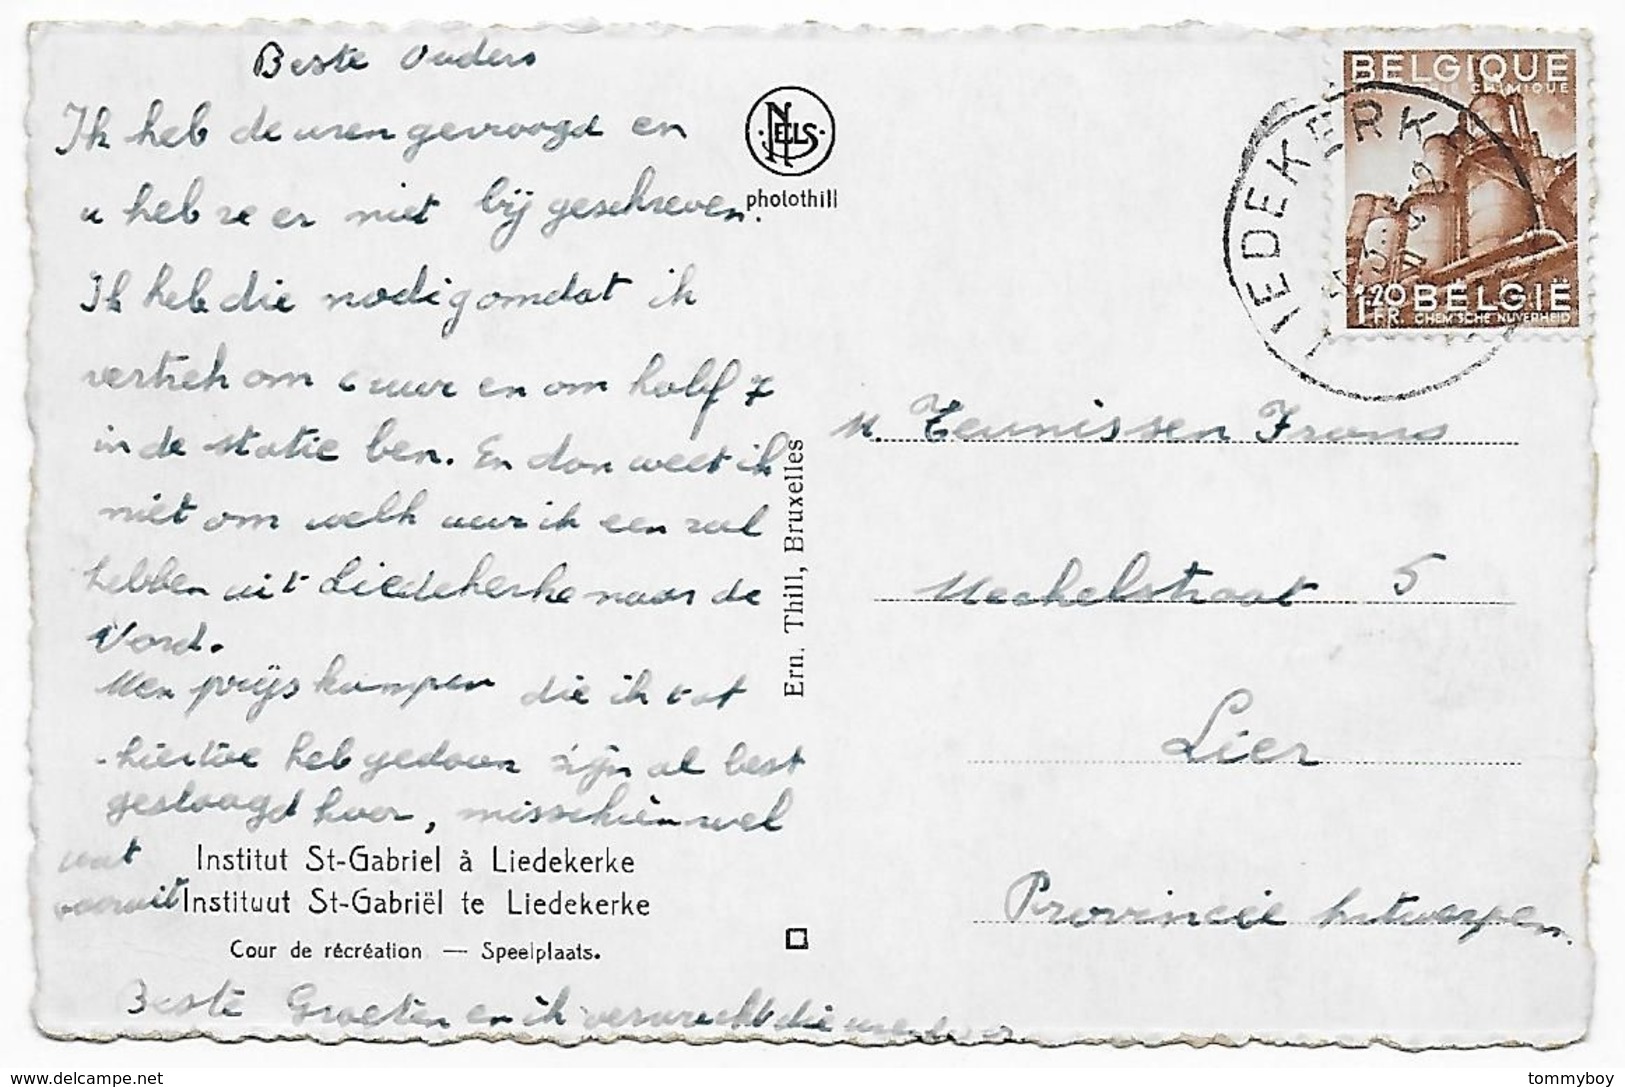 Beste Ouders
Ik heb de uren gevraagd en
u heb ze er niet bij geschreven.
Ik heb die nodig omdat ik
vertrek om 6 uur en om half 7
in de statie ben. En dan weet ik
niet om welk uur ik een zal
hebben uit Liedekerke naar de
Nord.
Men prijskampen die ik tot
hiertoe heb gedaan zijn al best
geslaagd hoor, misschien wel
wat
vooruit
Institut St-Gabriel à Liedekerke
Instituut St-Gabriël te Liedekerke
Cour de récréation — Speelplaats.
Beste Groeten en ik verwacht die uren
NELS
photothill
Ern. Thill, Bruxelles
BELGIQUE
CHIMIQUE
1.20 BELGIË
FR. CHEMISCHE NIJVERHEID
LIEDEKERKE
M. Teunissen Frans
Mechelstraat 5
Lier
Provincie Antwerpen.
www.delcampe.net
tommyboy